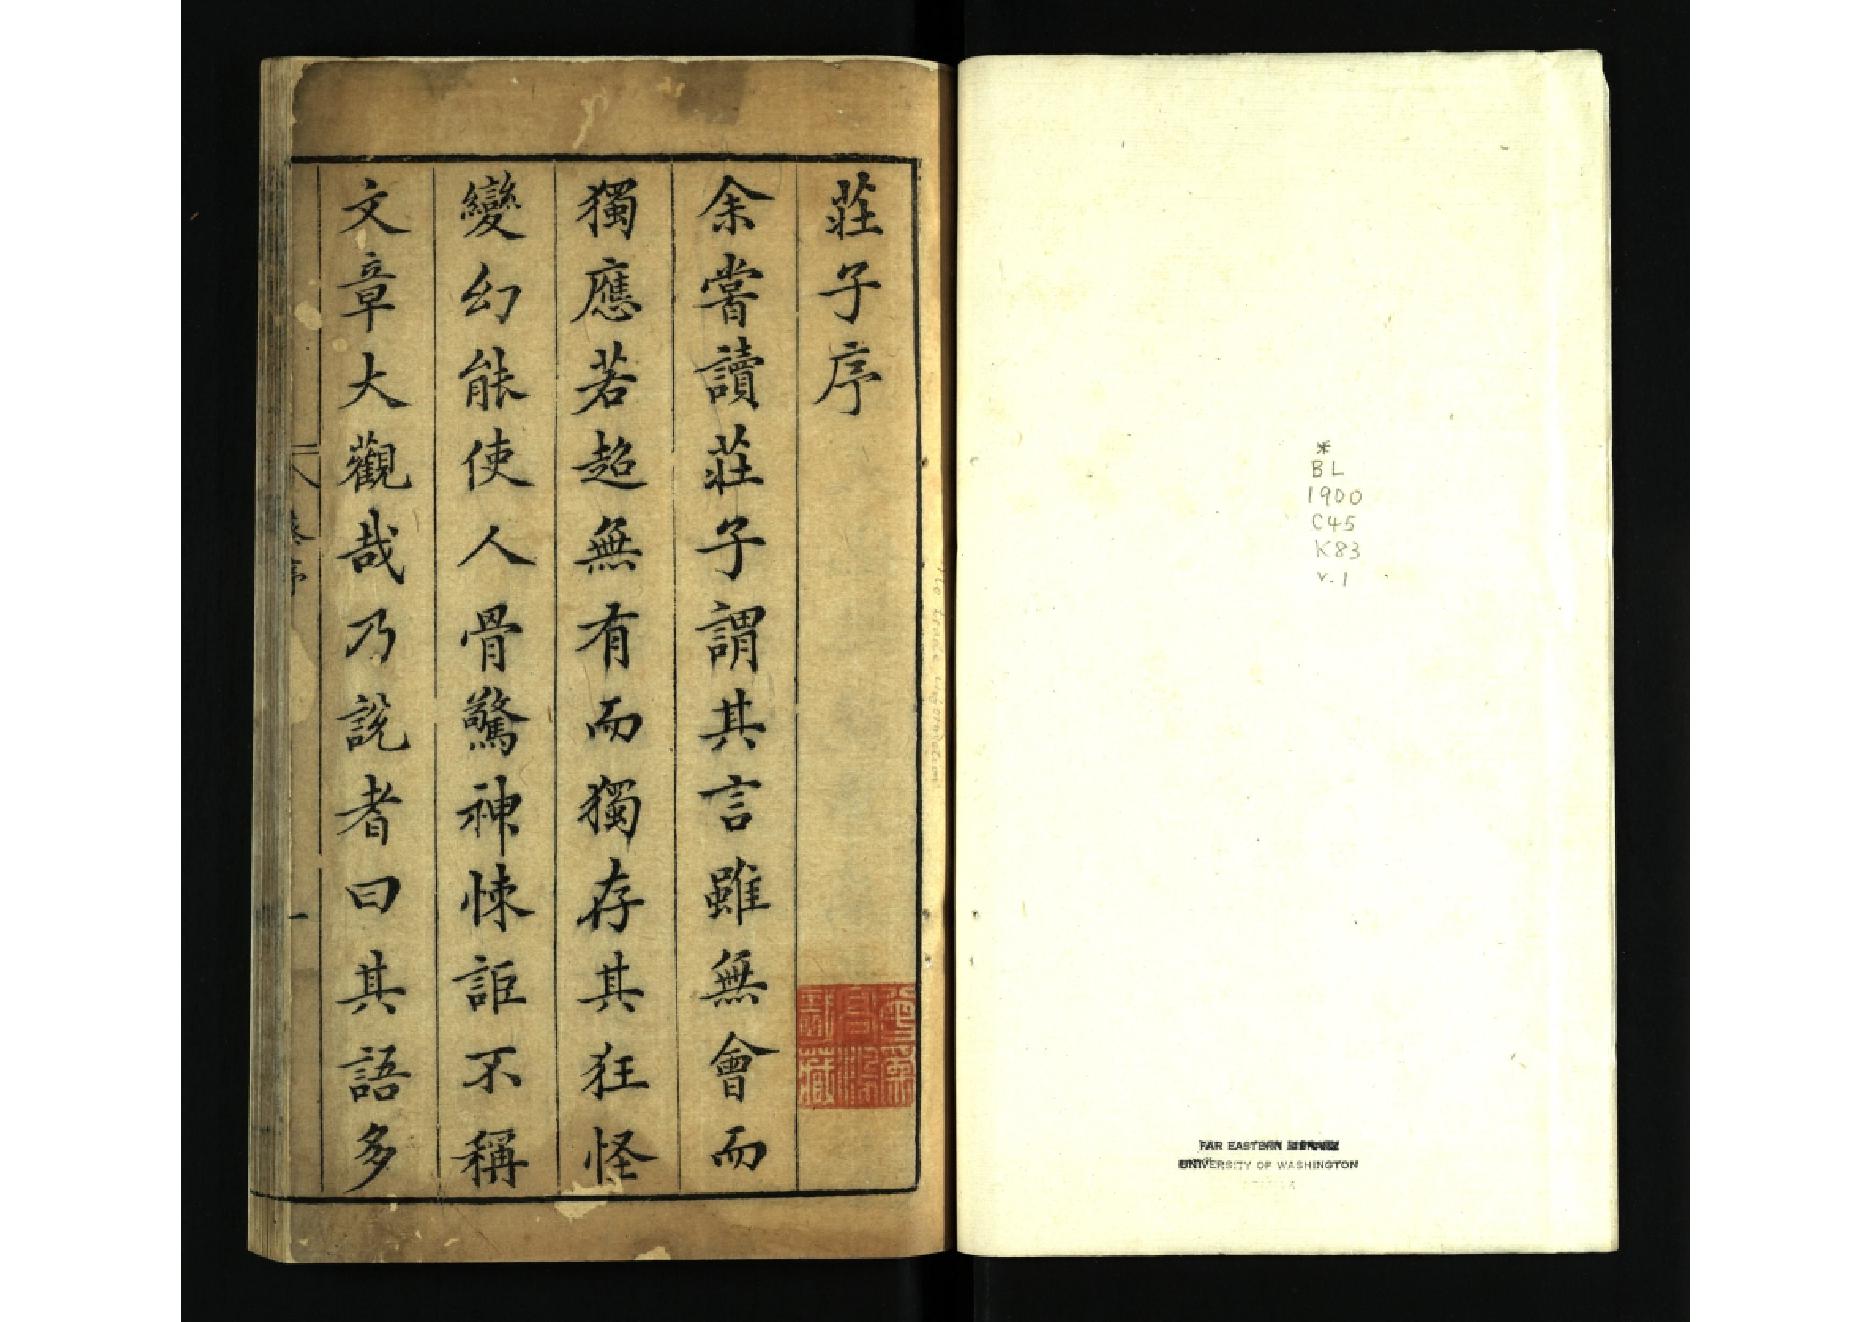 莊子序
余嘗讀莊子謂其言雖無會而
獨應若超無有而獨存其狂怪
變幻能使人骨驚神悚詎不稱
文章大觀哉乃說者曰其語多
一
*
BL
1900
C45
K83
v.1
FAR EASTERN
UNIVERSITY OF WASHINGTON